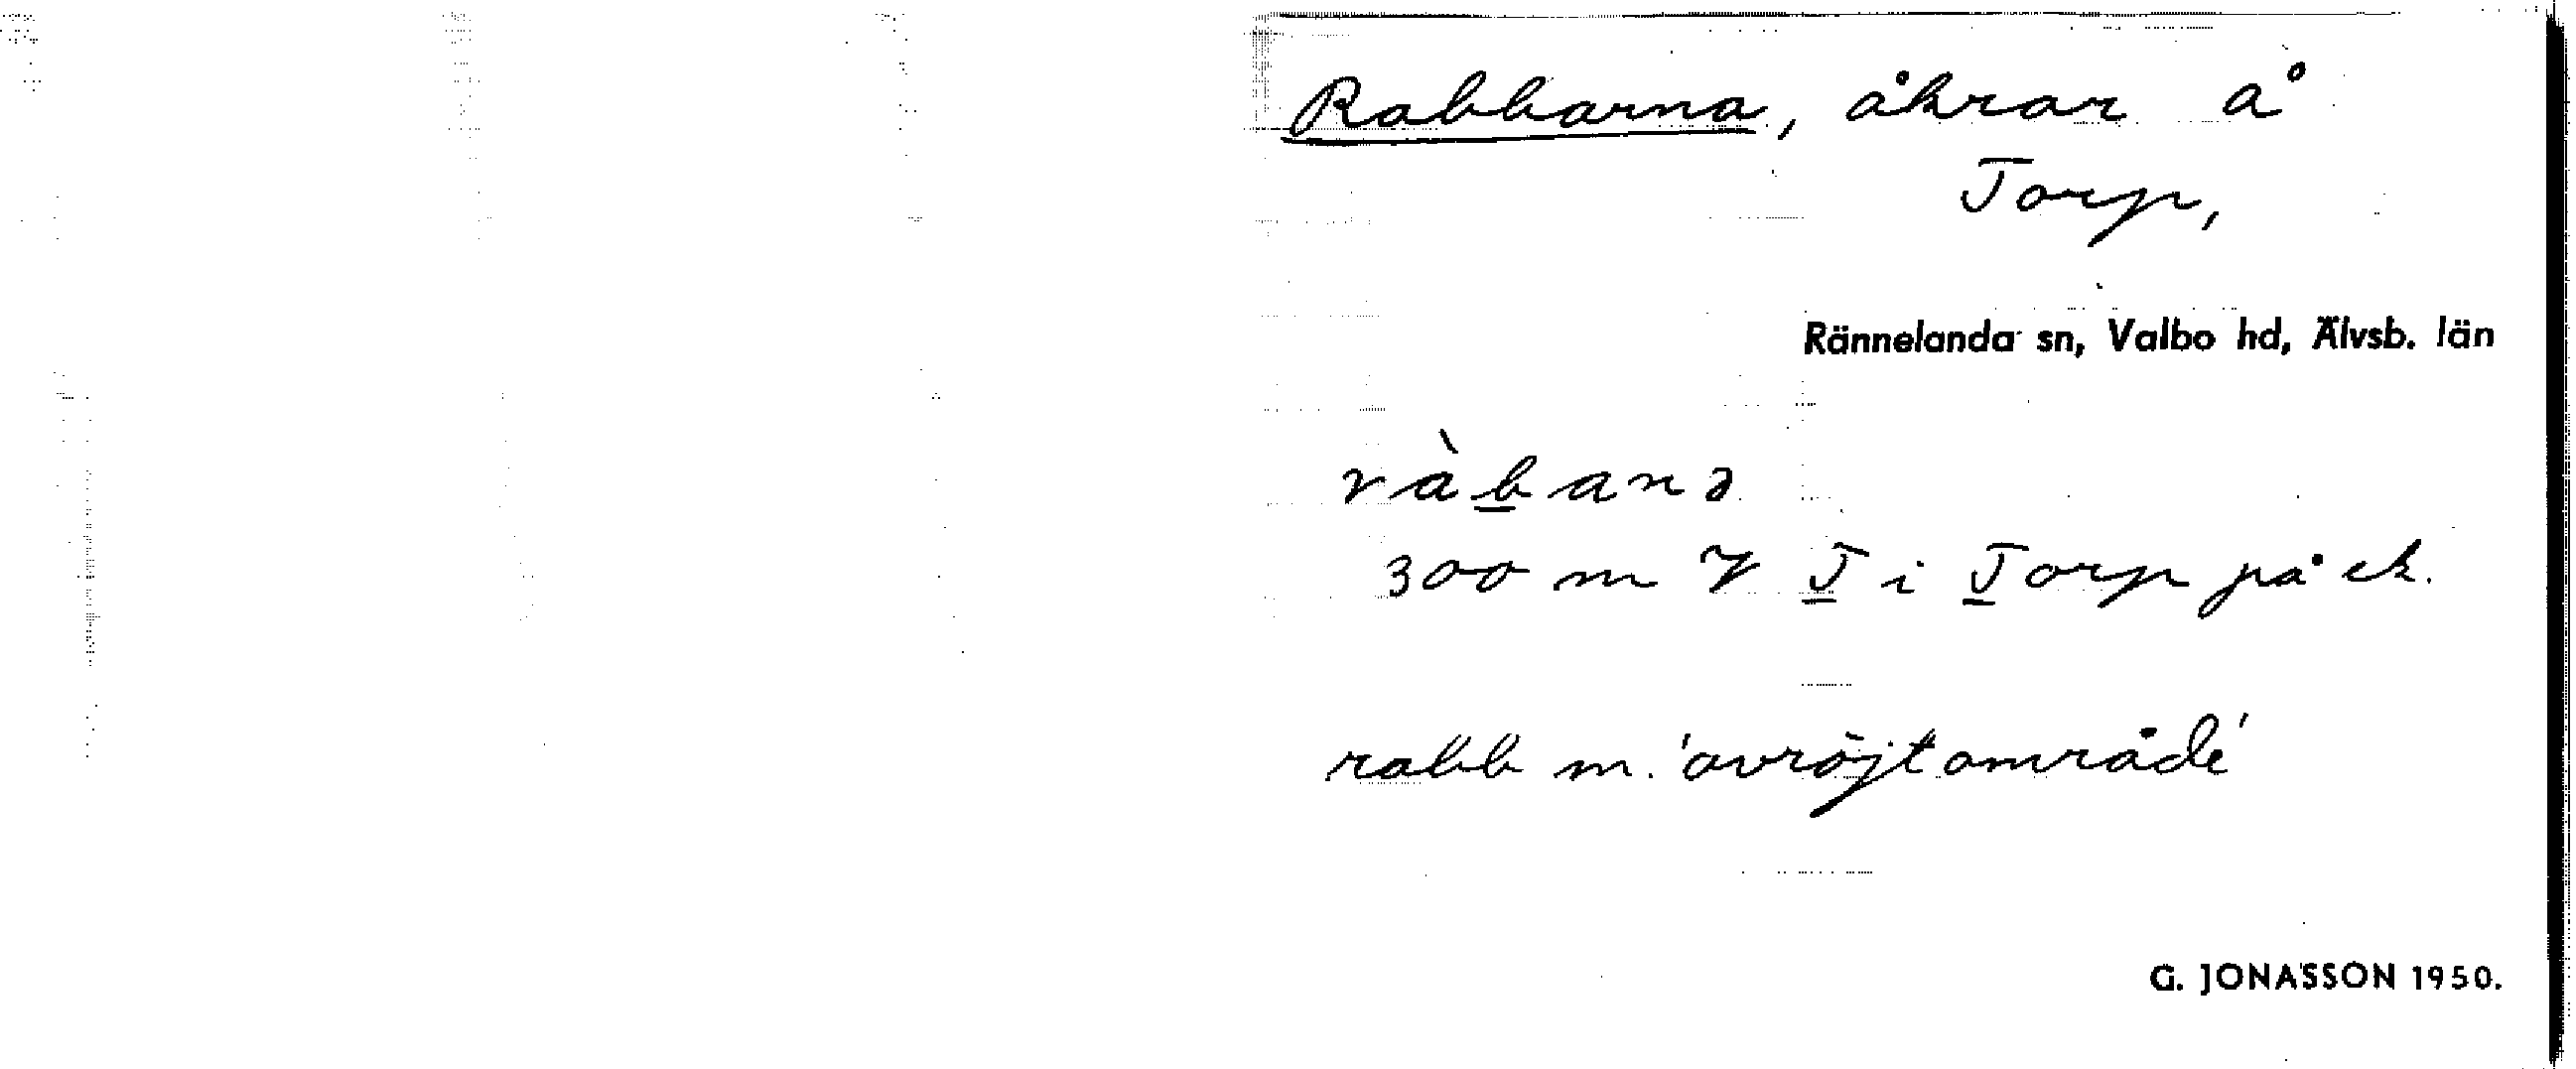 Rabbarna, åkrar å
Torp,
Rännelanda sn, Valbo hd, Älvsb. län
ràbanə
300 m V T i Torp på ek.
rabb m. 'avröjt område'
G. JONASSON 1950.